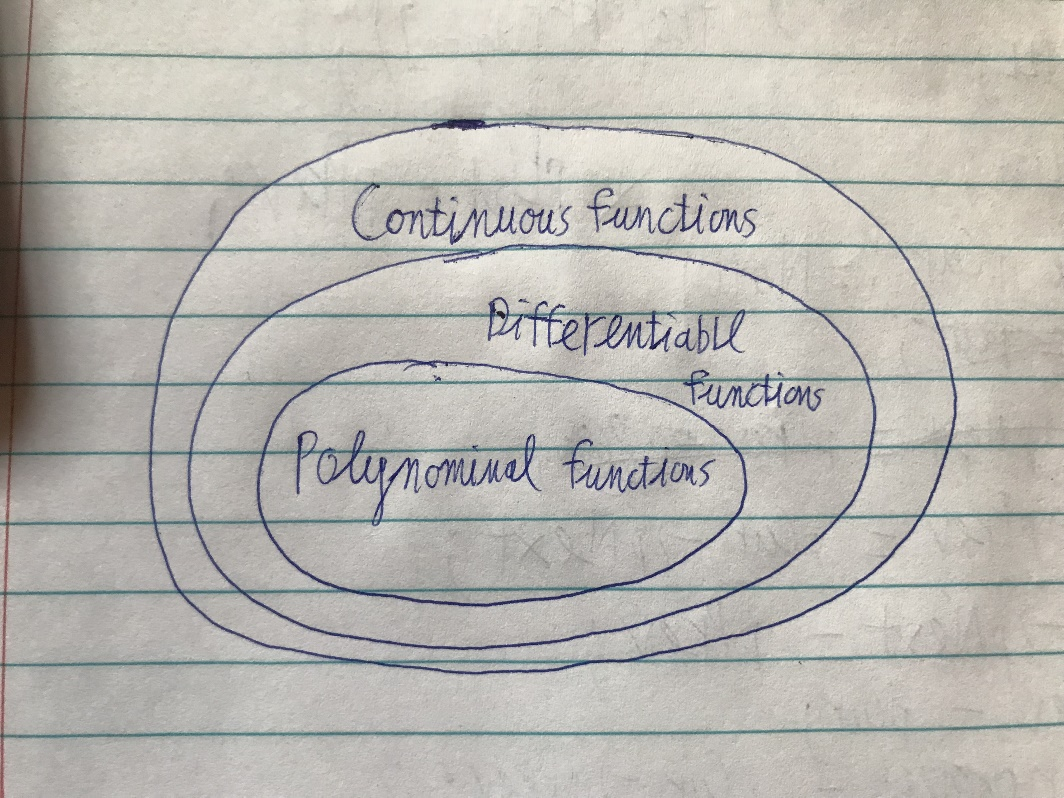 Continuous functions
Differentiable
functions
Polynominal functions